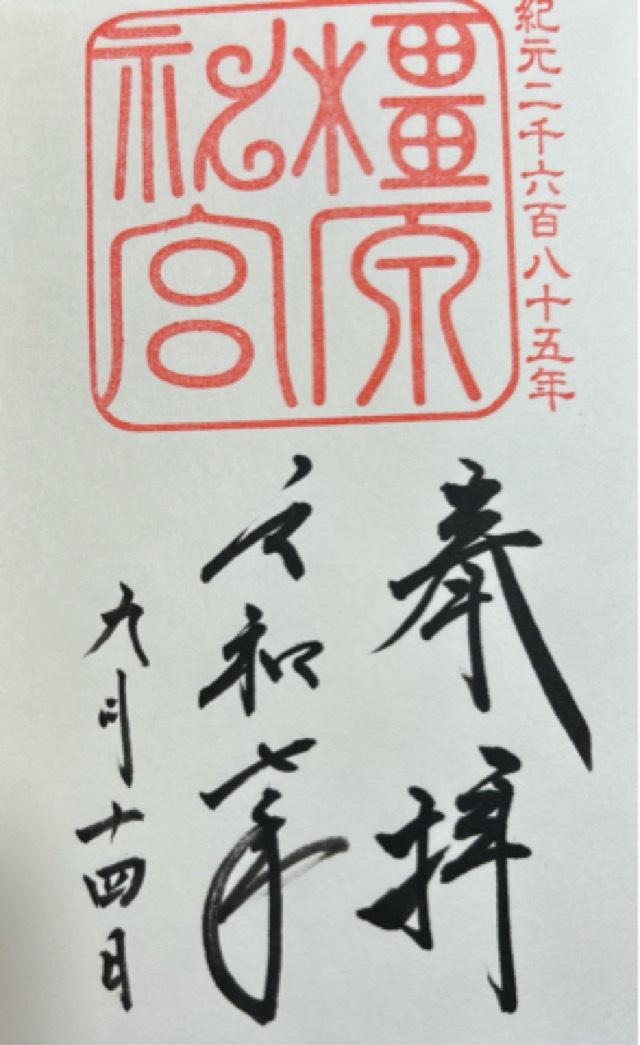 紀元二千六百八十五年
橿原
神宮
奉拝
令和七年
九月十四日